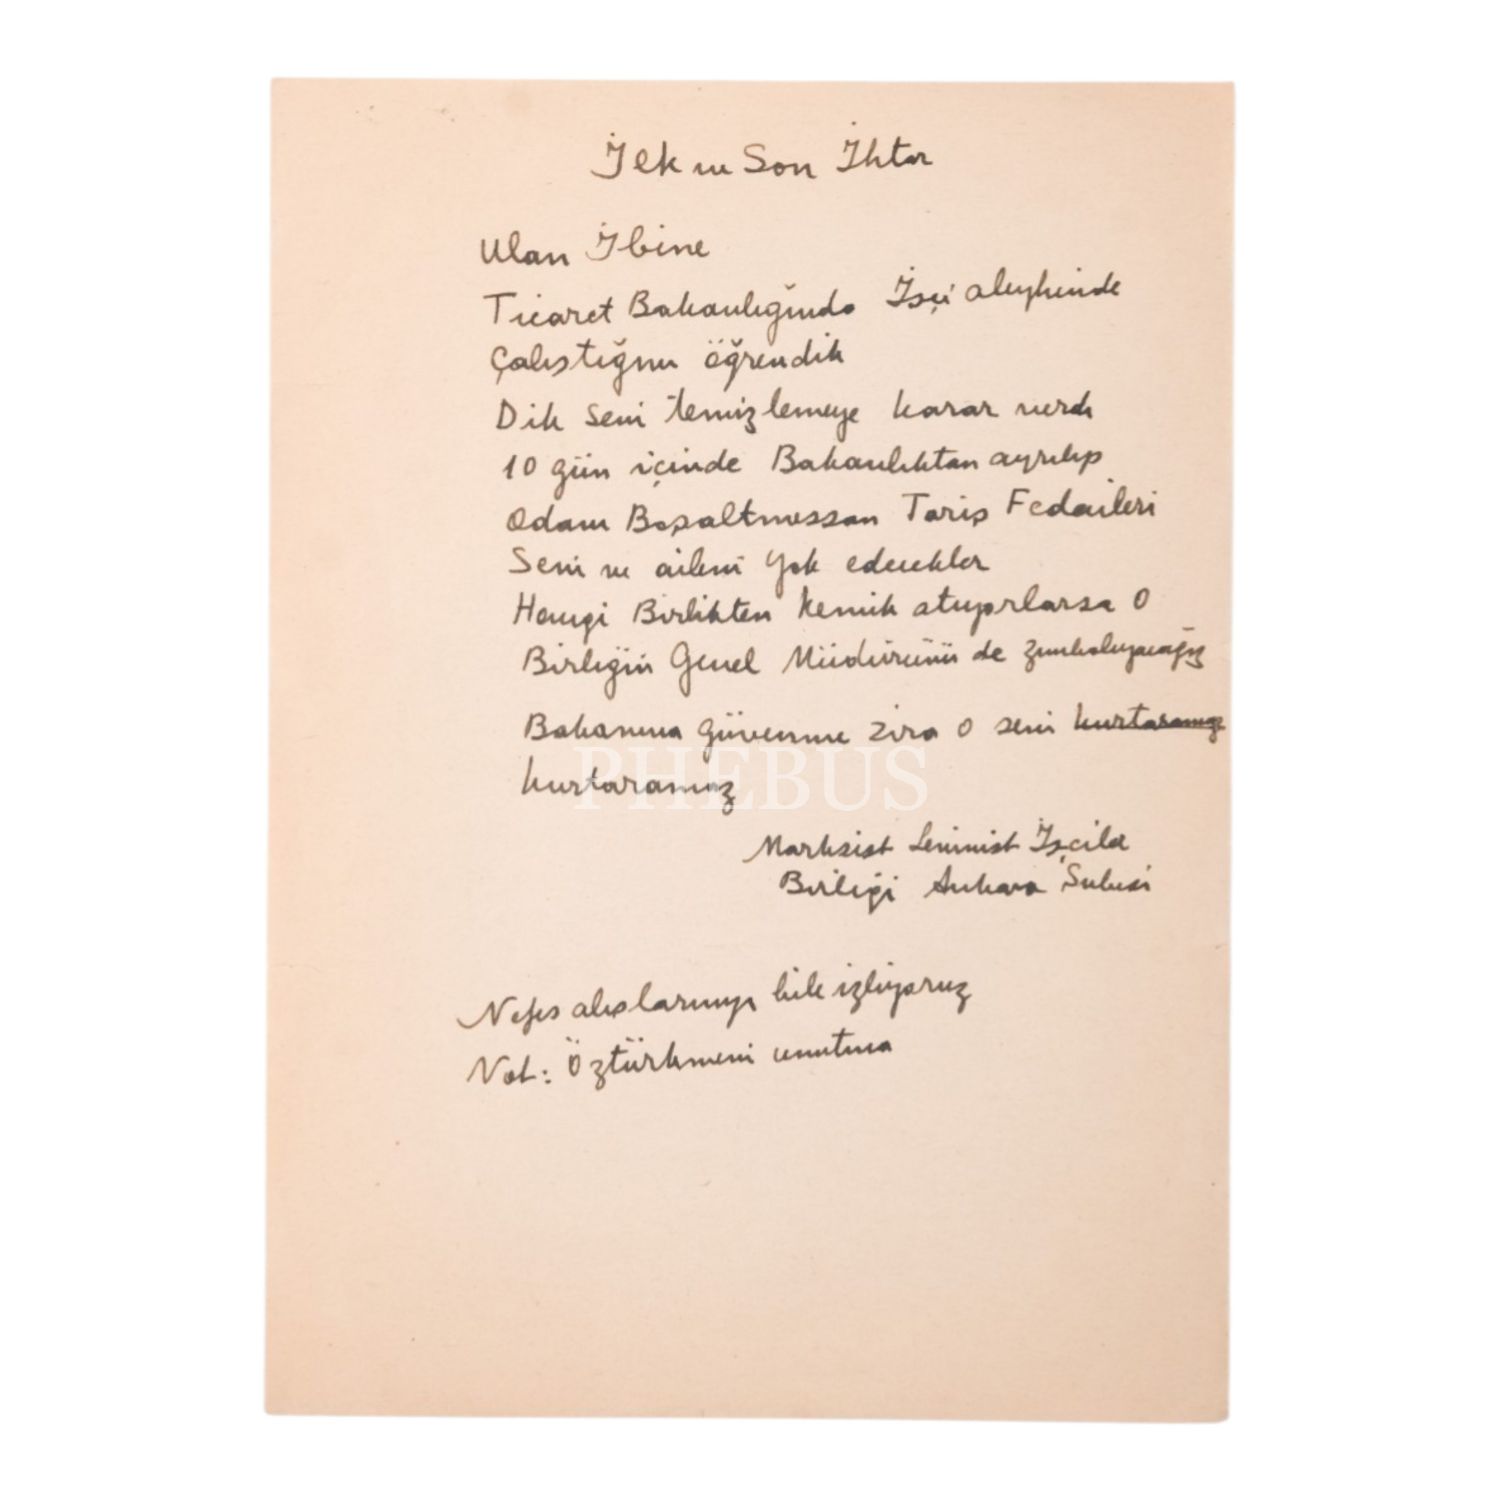 İlk ve Son İhtar
Ulan İbine
Ticaret Bakanlığında İşçi aleyhinde
Çalıştığını öğrendik
Dik seni temizlemeye karar verdi
10 gün içinde Bakanlıktan ayrılıp
Odanı Boşaltmassan Tariş Fedaileri
Seni ve aileni yok edecekler
Hangi Birlikten kemik atıyorlarsa O
Birliğin Genel Müdürünü de zımbalıyacağız
Bakanına güvenme zira O seni kurtaramaz
kurtaramaz
PHEBUS
Marksist Leninist İşçiler
Birliği Ankara Şubesi
Nefes alışlarınıyı bile izliyoruz
Not: Öztürkmeni unutma